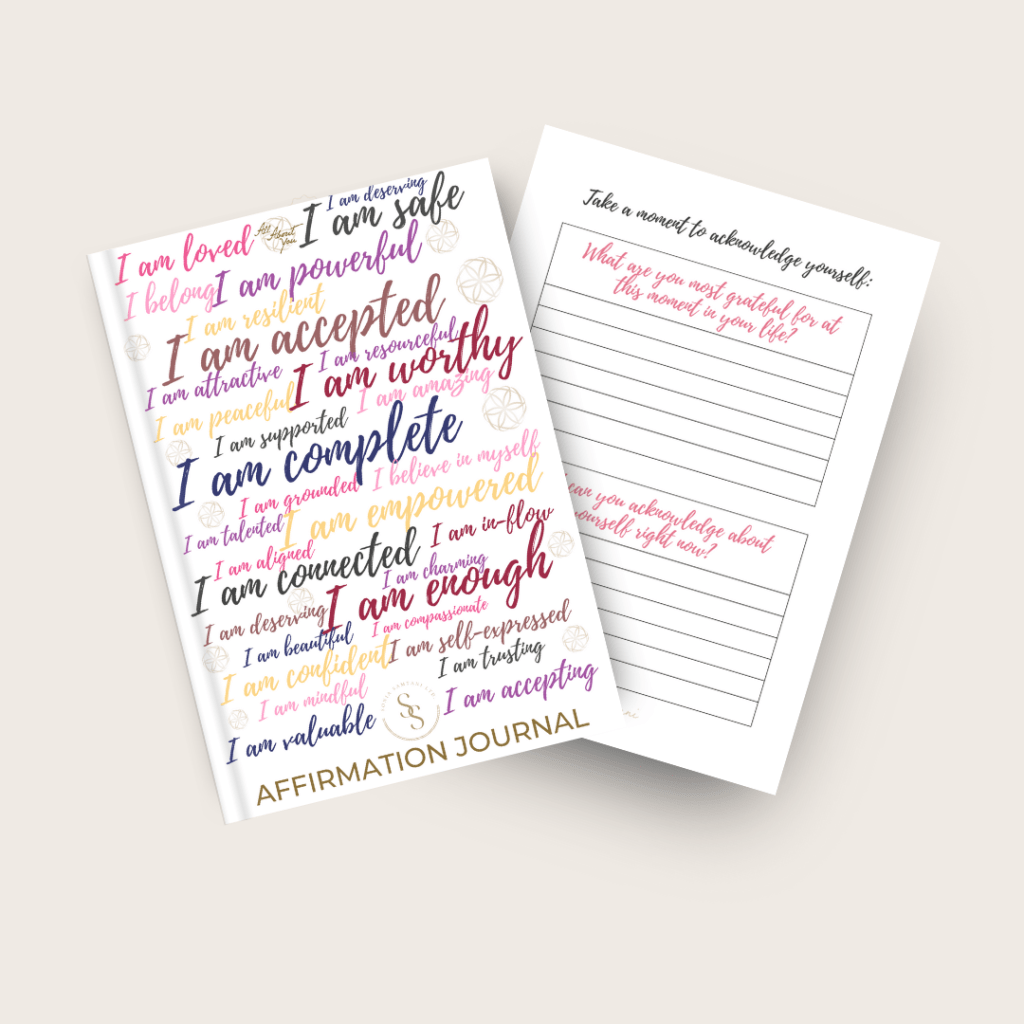 I am deserving
I am safe
All About You
I am loved
I am powerful
I belong
I am resilient
I am accepted
I am resourceful
I am worthy
I am attractive
I am amazing
I am peaceful
I am supported
I am complete
I believe in myself
I am grounded
I am empowered
I am talented
I am in-flow
I am aligned
I am connected
I am charming
I am enough
I am deserving
I am compassionate
I am beautiful
I am self-expressed
I am confident
I am trusting
I am mindful
I am accepting
SS
I am valuable
AFFIRMATION JOURNAL
Take a moment to acknowledge yourself:
What are you most grateful for at
this moment in your life?
can you acknowledge about
yourself right now?